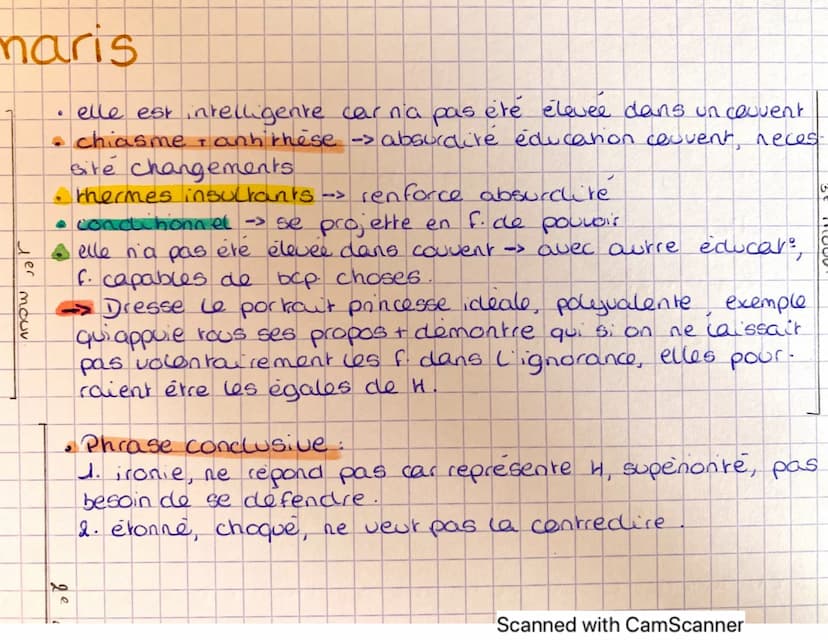 maris
• elle est intelligente car n'a pas été élevée dans un couvent
• chiasme + anthithèse -> absurdité éducation couvent, neces-
sité changements
• thermes insultants -> renforce absurdité
• conditionnel -> se projette en f. de pouvoir
elle n'a pas été élevée dans couvent -> avec autre éducat°,
f. capables de bcp choses.
-> Dresse le portrait princesse idéale, polyvalente, exemple
qui appuie tous ses propos + démontre qui si on ne laissait
pas volontairement les f. dans l'ignorance, elles pour-
raient être les égales de H.
1er mouv.
• Phrase conclusive :
1. ironie, ne répond pas car représente H, supériorité, pas
besoin de se défendre.
2. étonné, choqué, ne veut pas la contredire.
2e
Scanned with CamScanner